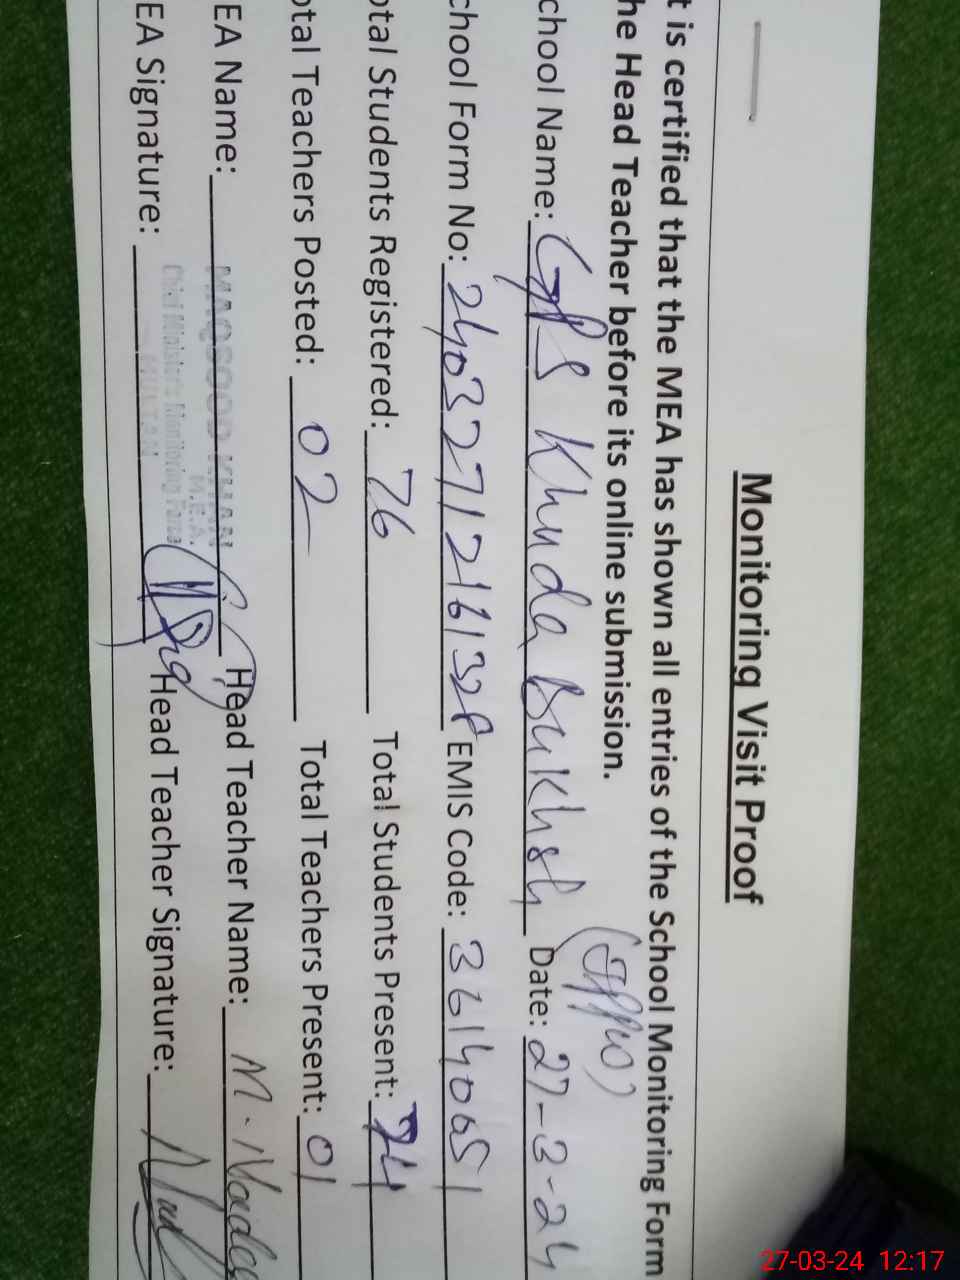 Monitoring Visit Proof
t is certified that the MEA has shown all entries of the School Monitoring Form
he Head Teacher before its online submission.
chool Name: GPS Khuda Bukhsh Date: 27-3-24
chool Form No: EMIS Code:
otal Students Registered: 76 Total Students Present: 74
otal Teachers Posted: 02 Total Teachers Present: 01
EA Name: MAQSOOD KHAN Head Teacher Name: M.
M.E.A.
Chief Minister's Monitoring Force
MULTAN
EA Signature: Head Teacher Signature:
27-03-24 12:17